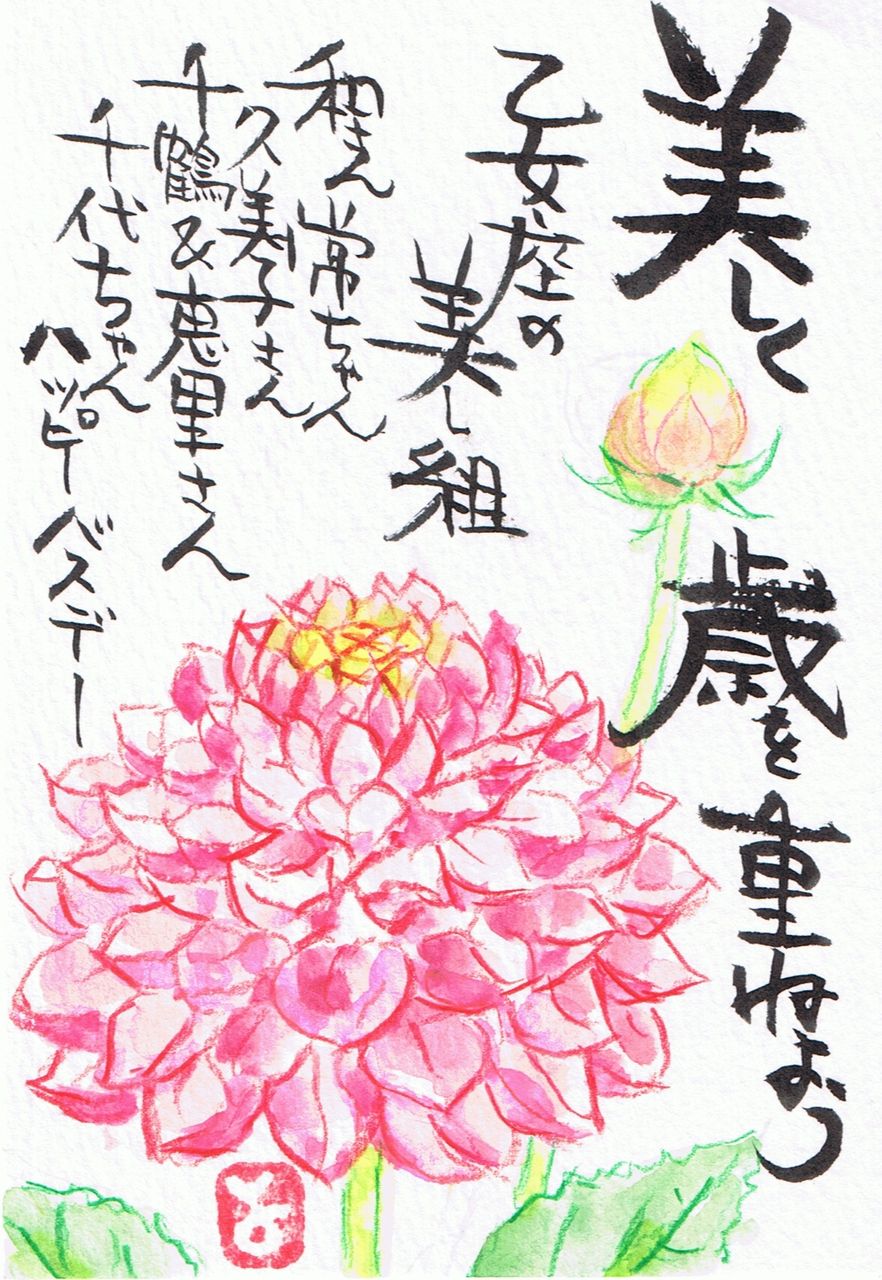 美しく歳を重ねよう
乙女座の
美し組
和さん常ちゃん
久美子さん
千鶴&恵里さん
千代ちゃん
ハッピーバスデー